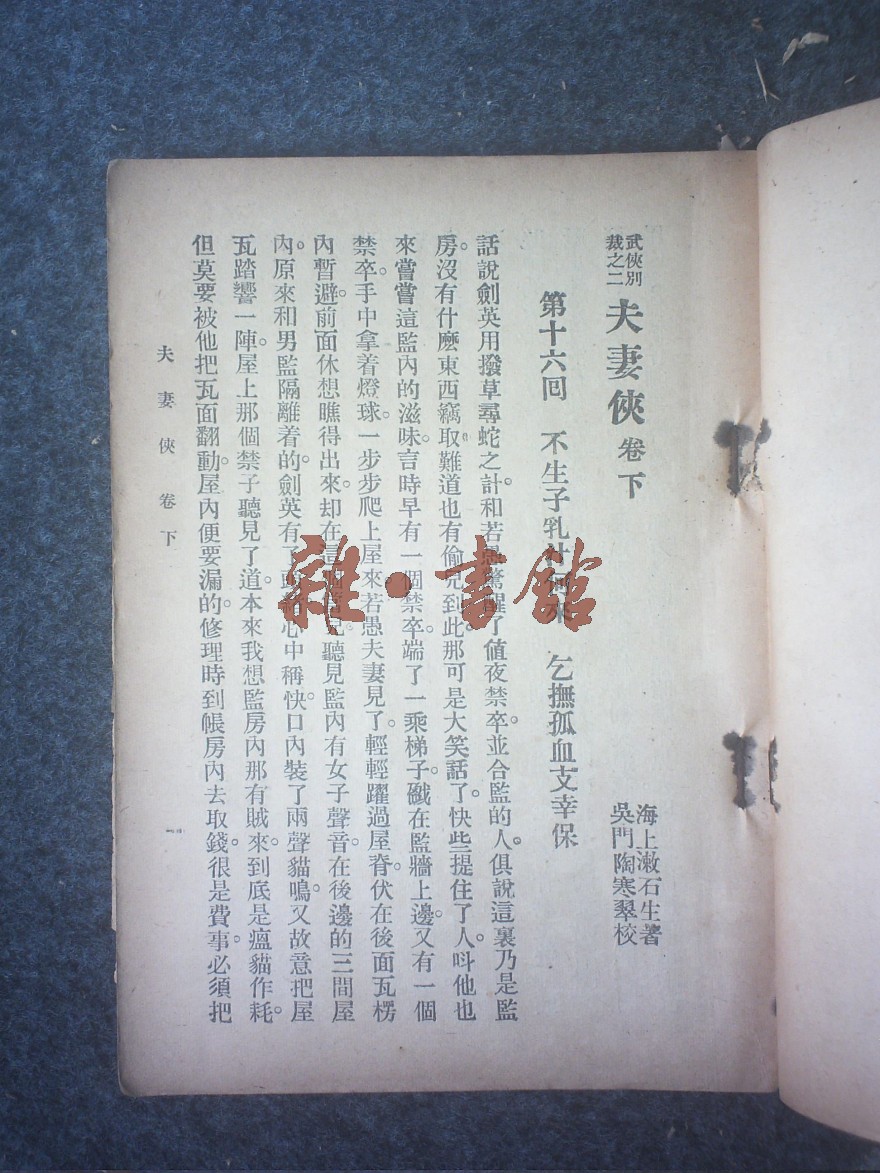 武俠別裁之二 夫妻俠 卷下
海上漱石生著
吳門陶寒翠校
第十六回 不生子乳汁何來 乞撫孤血支幸保
話說劍英用撥草尋蛇之計。和若愚驚醒了値夜禁卒。並合監的人。俱說這裏乃是監
房。沒有什麽東西竊取。難道也有偷兒到此。那可是大笑話了。快些提住了人。呌他也
來嘗嘗這監內的滋味。言時早有一個禁卒。端了一乘梯子。戤在監牆上邊。又有一個
禁卒。手中拿着燈球。一步步爬上屋來。若愚夫妻見了。輕輕躍過屋脊。伏在後面瓦楞
內暫避。前面休想瞧得出來。却在這個當兒。聽見監內有女子聲音。在後邊的三間屋
內。原來和男監隔離着的。劍英有了頭緒。心中稱快。口內裝了兩聲貓鳴。又故意把屋
瓦踏響一陣。屋上那個禁子聽見了。道。本來我想監房內那有賊來。到底是瘟貓作耗。
但莫要被他把瓦面翻動。屋內便要漏的。修理時到帳房內去取錢。很是費事。必須把
夫妻俠 卷下
一
雜·書館